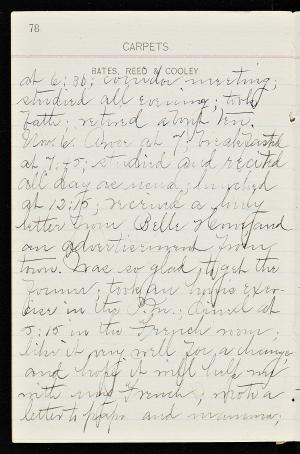 78
CARPETS
BATES, REED & COOLEY
at 6:30; corridor meeting;
studied all evening; took
bath; retired about ten.
Nov. 6. Arose at 7; breakfasted
at 7:45; studied and recited
all day as usual; lunched
at 12:15; received a long
letter from Belle H and
an advertisement from
town. Was so glad to get the
former; took an hours exer-
cise in the P.M.; dined at
5:15 in the French room;
like it very well for a change
and hope it will help me
with my French; wrote a
letter to papa and mamma;